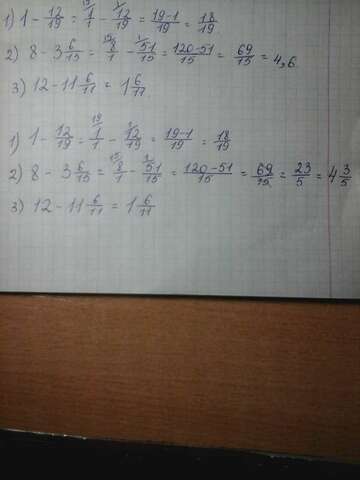 1) 1 - 12/19 = ¹⁹⁾1/1 - ¹⁾12/19 = 19-1/19 = 18/19
2) 8 - 3 6/15 = ¹⁵⁾8/1 - ¹⁾51/15 = 120-51/15 = 69/15 = 4,6
3) 12 - 11 6/11 = 1 6/11
1) 1 - 12/19 = ¹⁹⁾1/1 - ¹⁾12/19 = 19-1/19 = 18/19
2) 8 - 3 6/15 = ¹⁵⁾8/1 - ¹⁾51/15 = 120-51/15 = 69/15 = 23/5 = 4 3/5
3) 12 - 11 6/11 = 1 6/11